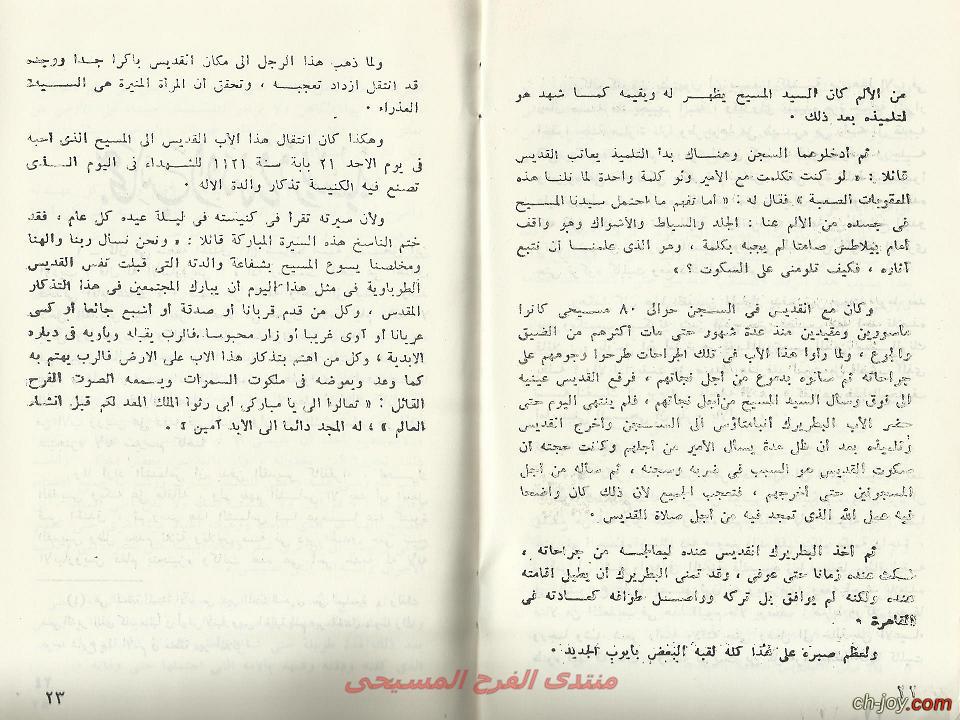 من الألم كان السيد المسيح يظهر له ويقيمه كما شهد هو
لتلميذه بعد ذلك .
ثم أدخلوهما السجن وهناك بدأ التلميذ يعاتب القديس
قائلا : « لو كنت تكلمت مع الأمير ولو كلمة واحدة لما نلنا هذه
العقوبات الصعبة » فقال له : « أما تفهم ما احتمل سيدنا المسيح
فى جسده من الألم عنا : الجلد والسياط والأشواك وهو واقف
أمام بيلاطس صامتا لم يجبه بكلمة ، وهو الذى علمنا أن نتبع
آثاره ، فكيف تلومنى على السكوت ؟ »
وكان مع القديس فى السجن حوالى ٨٠ مسيحى كانوا
مأسورين ومقيدين منذ عدة شهور حتى مات أكثرهم من الضيق
والجوع ، ولما رأوا هذا الأب فى تلك الجراحات طرحوا وجوههم على
جراحاته ثم سألوه بدموع من أجل نجاتهم ، فرفع القديس عينيه
الى فوق وسأل السيد المسيح من أجل نجاتهم ، فلم ينتهى اليوم حتى
حضر الأب البطريرك أنبا متاؤس الى السجن وأخرج القديس
وتلميذه بعد أن ظل مدة يسأل الأمير من أجلهم وكانت حجته أن
سكوت القديس هو السبب فى ضربه وسجنه ، ثم سأله من أجل
المسجونين حتى أخرجهم ، فتعجب الجميع لأن ذلك كان واضحا
فيه عمل الله الذى تمجد فيه من أجل صلاة القديس .
ثم أخذ البطريرك القديس عنده ليعالجه من جراحاته ،
فمكث عنده زمانا حتى عوفى ، وقد تمنى البطريرك أن يطيل اقامته
عنده ولكنه لم يوافق بل تركه وواصل طوافه كعادته فى
القاهرة .
ولعظم صبره على هذا كله لقبه البعض بأيوب الجديد .
ولما ذهب هذا الرجل الى مكان القديس باكرا جدا ووجده
قد انتقل ازداد تعجبه ، وتحقق أن المرأة المنيرة هى السيدة
العذراء .
وهكذا كان انتقال هذا الأب القديس الى المسيح الذى أحبه
فى يوم الاحد ٢١ بابة سنة ١١٢١ للشهداء فى اليوم الذى
تصنع فيه الكنيسة تذكار والدة الاله .
ولأن سيرته تقرأ فى كنيسته فى ليلة عيده كل عام ، فقد
ختم الناسخ هذه السيرة المباركة قائلا : « ونحن نسأل ربنا والهنا
ومخلصنا يسوع المسيح بشفاعة والدته التى قبلت نفس القديس
الطرباوية فى مثل هذا اليوم أن يبارك المجتمعين فى هذا التذكار
المقدس ، وكل من قدم قربانا أو صدقة أو أشبع جائعا أو كسى
عريانا أو آوى غريبا أو زار محبوسا فالرب يقبله ويأويه فى دياره
الابدية ، وكل من اهتم بتذكار هذا الاب على الارض فالرب يهتم به
كما وعد ويعوضه فى ملكوت السموات ويسمعه الصوت الفرح
القائل : « تعالوا الى يا مباركى أبى رثوا الملك المعد لكم قبل انشاء
العالم » ، له المجد دائما الى الأبد آمين » .
٢٣
منتدى الفرح المسيحى
ch-joy.com